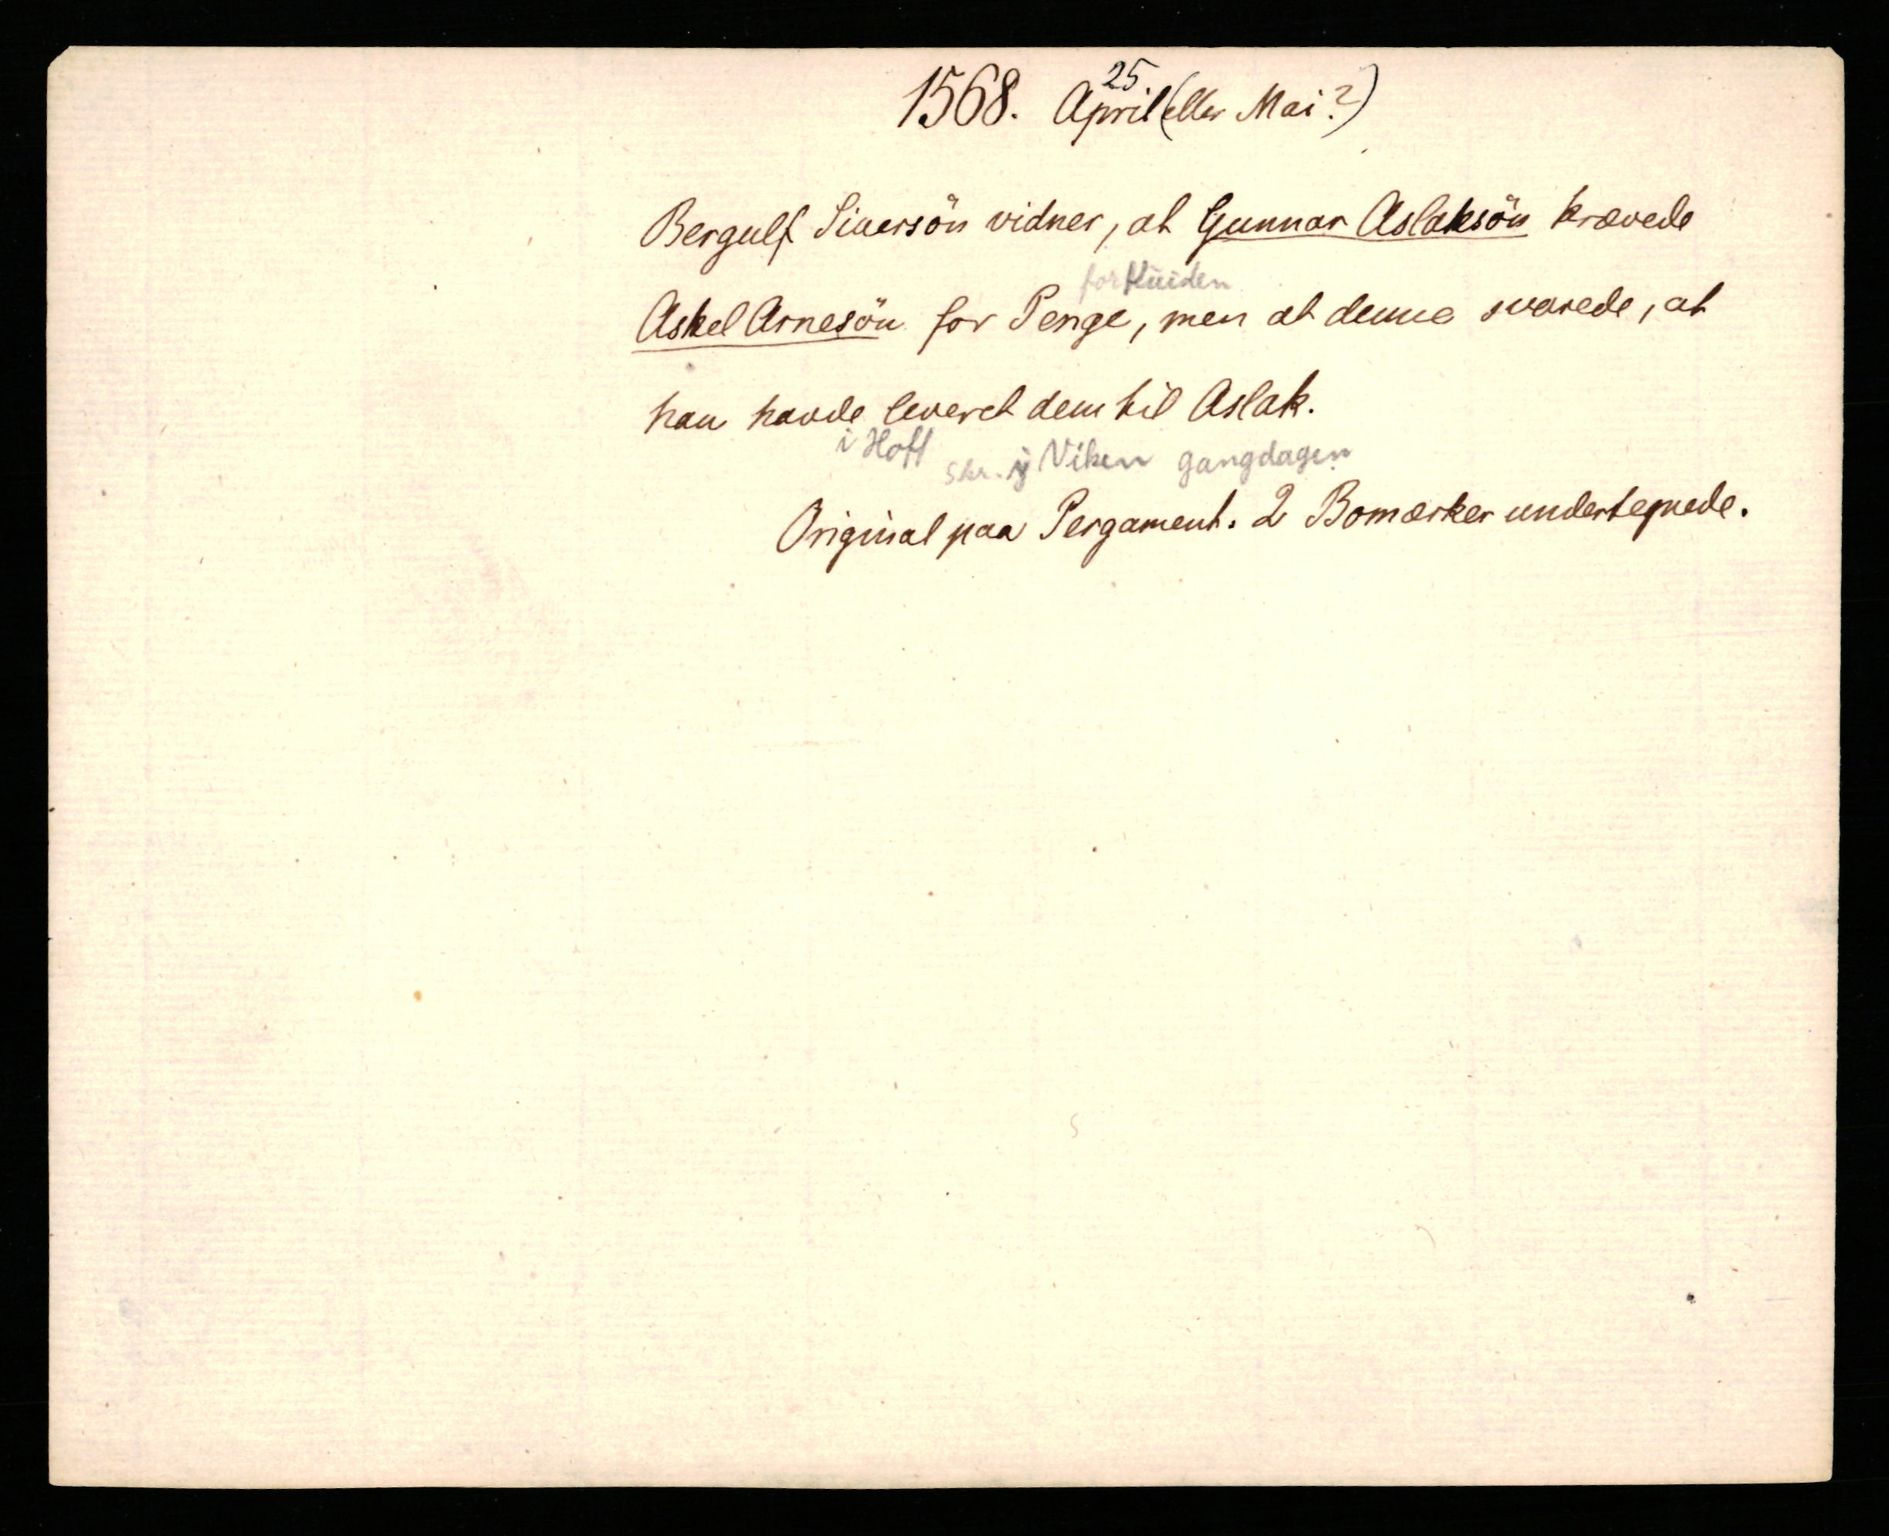 25
1568. April (eller Mai?)
Bergulf Siuersön vidner, at Gunnar Aslaksön krævede
for Huiden
Askel Arnesön for Penge, men at denne svarede, at
han havde leveret dem til Aslak.
i Hoff skr. i Viken gangdagen
Original paa Pergament. 2 Bomærker undertegnede.